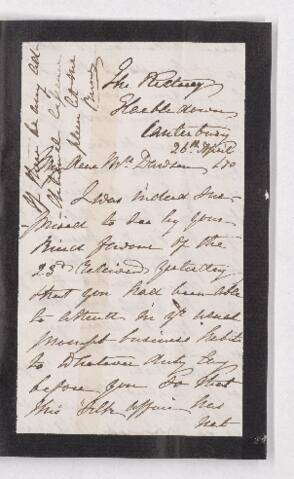 The Rectory
Harbledown
Canterbury
26th April
My dear Mr Dawson
I was indeed sur-
-prised to see by your
kind favour of the
23d received yesterday
that you had been able
to attend in yr usual
prompt business habits
to whatever duty lay
before you so that
this silk affair has
not
If there be any ad